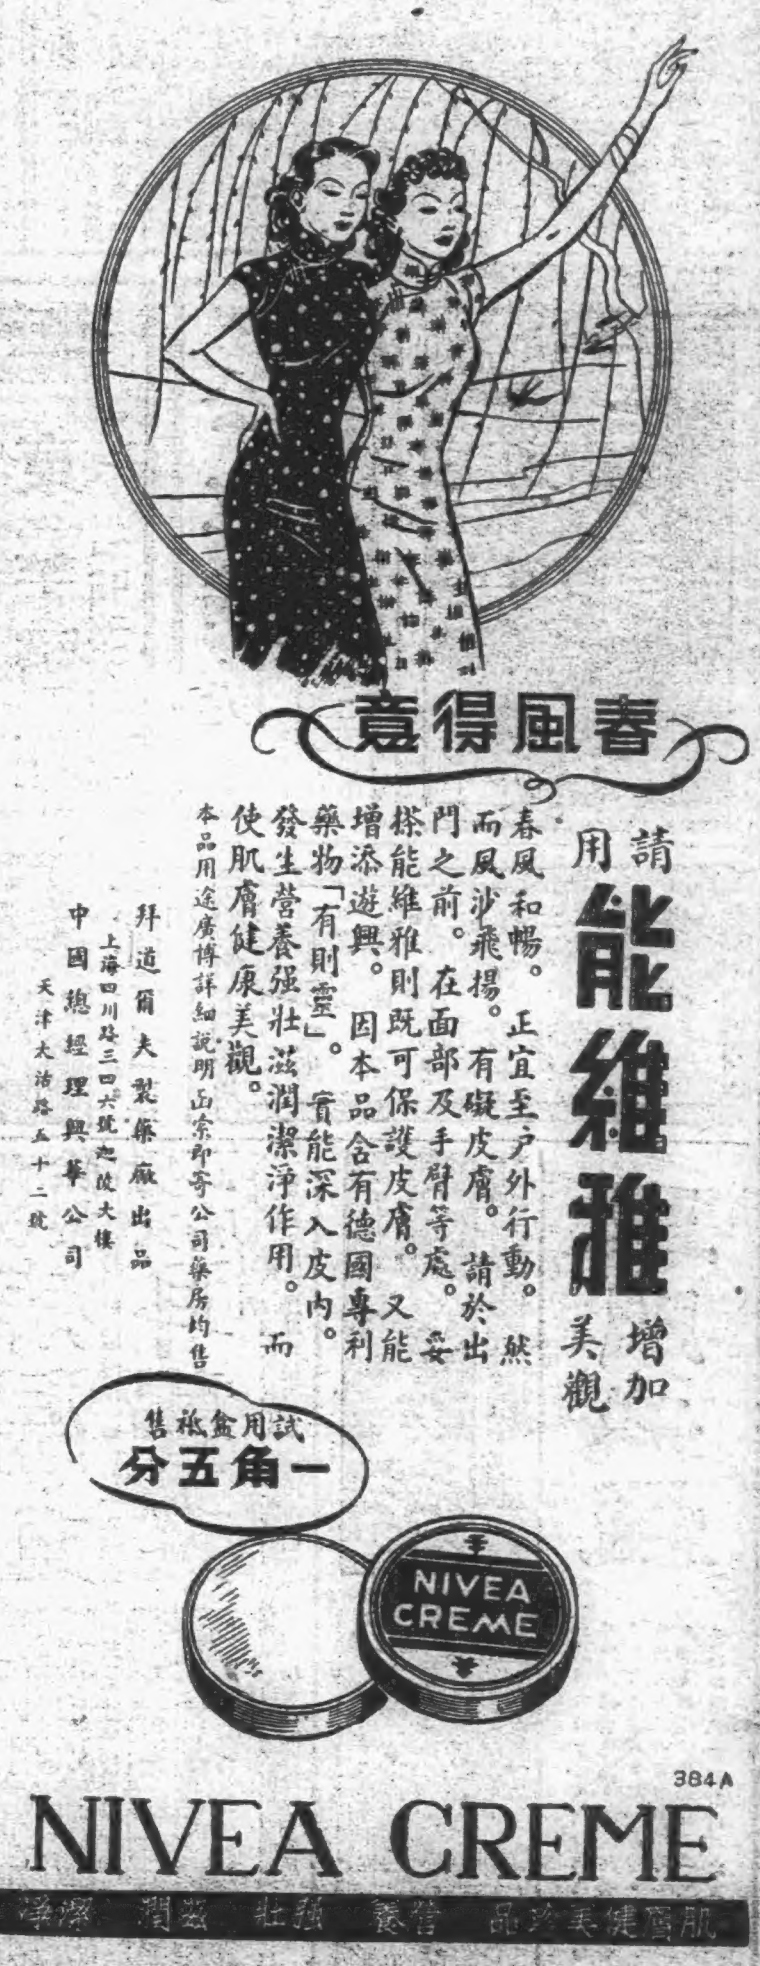 春風得意
請用
能維雅
增加
美觀
春風和暢。正宜至户外行動。然
而風沙飛揚。有礙皮膚。請於出
門之前。在面部及手臂等處。妥
搽能維雅則既可保護皮膚。又能
增添遊興。因本品含有德國專利
藥物「有則靈」。實能深入皮内。
發生營養强壯滋潤潔淨作用。而
使肌膚健康美觀。
本品用途廣博詳細説明函索即寄公司藥房均售
拜道爾夫製藥廠出品
上海四川路三四六號迦陵大樓
中國總經理興華公司
天津大沽路五十二號
試用盒祗售
一角五分
NIVEA
CREME
384A
NIVEA CREME
肌膚健美珍品 營養 强壯 滋潤 潔淨